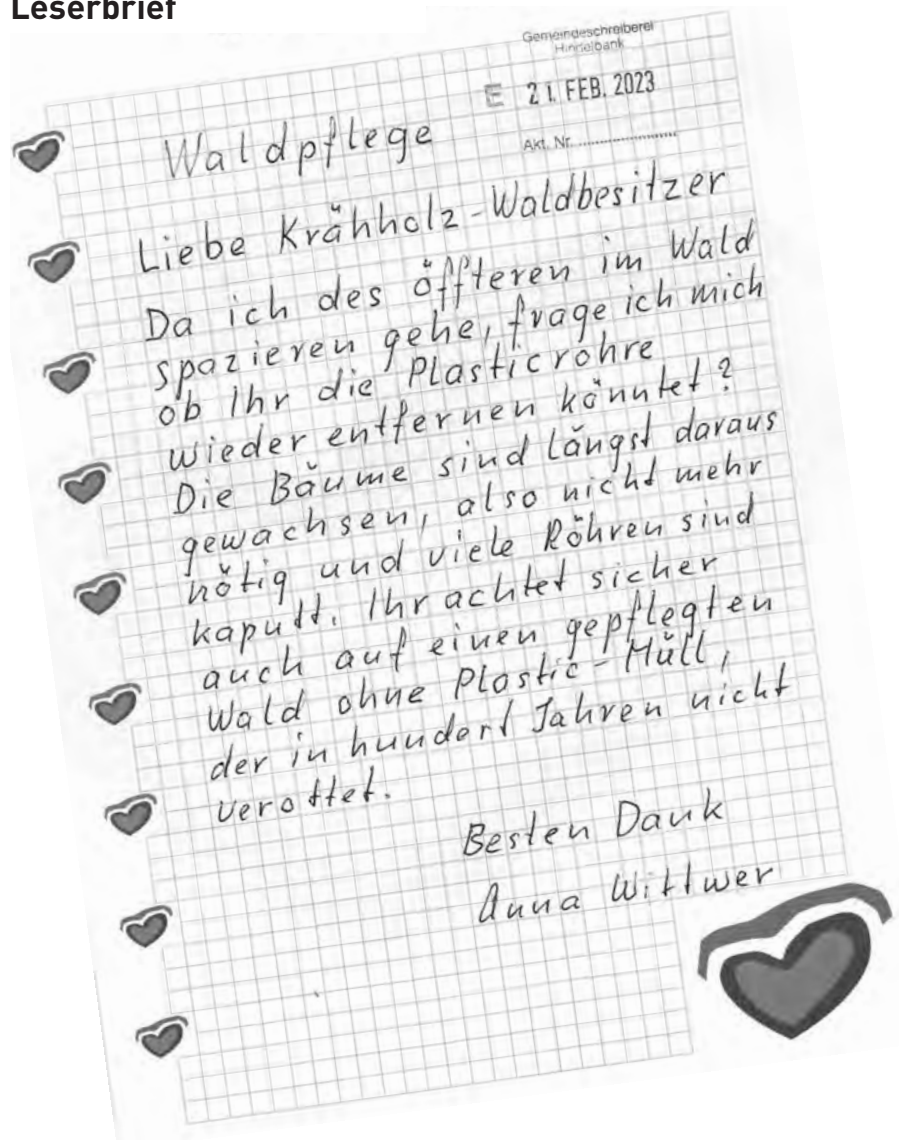 Leserbrief
Gemeindeschreiberei
Hindelbank
E 21. FEB. 2023
Akt. Nr. ........................
Waldpflege
Liebe Krähholz-Waldbesitzer
Da ich des öffteren im Wald
spazieren gehe, frage ich mich
ob Ihr die Plasticrohre
wieder entfernen könntet?
Die Bäume sind längst daraus
gewachsen, also nicht mehr
nötig und viele Röhren sind
kaputt. Ihr achtet sicher
auch auf einen gepflegten
Wald ohne Plastic-Müll,
der in hundert Jahren nicht
verottet.
Besten Dank
Anna Wittwer